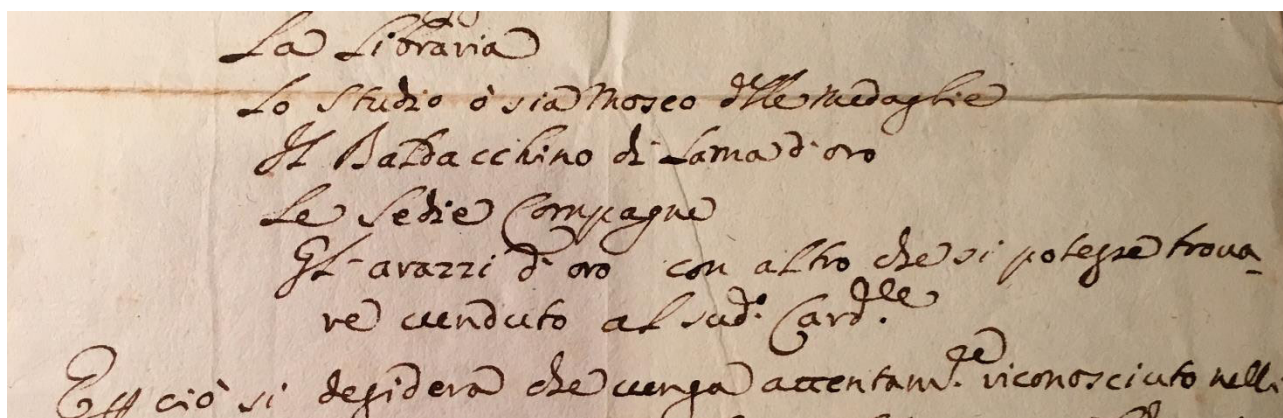 La Libraria
Lo Studio ò sia Moseo delle Medaglie
Il Baldacchino di Lama d'oro
Le Sedie Compagne
Gl'arazzi d'oro con altro che si potesse troua-
re uenduto al sud.º Card.le
E p ciò si desidera che uenga attentam.te riconosciuto nelli